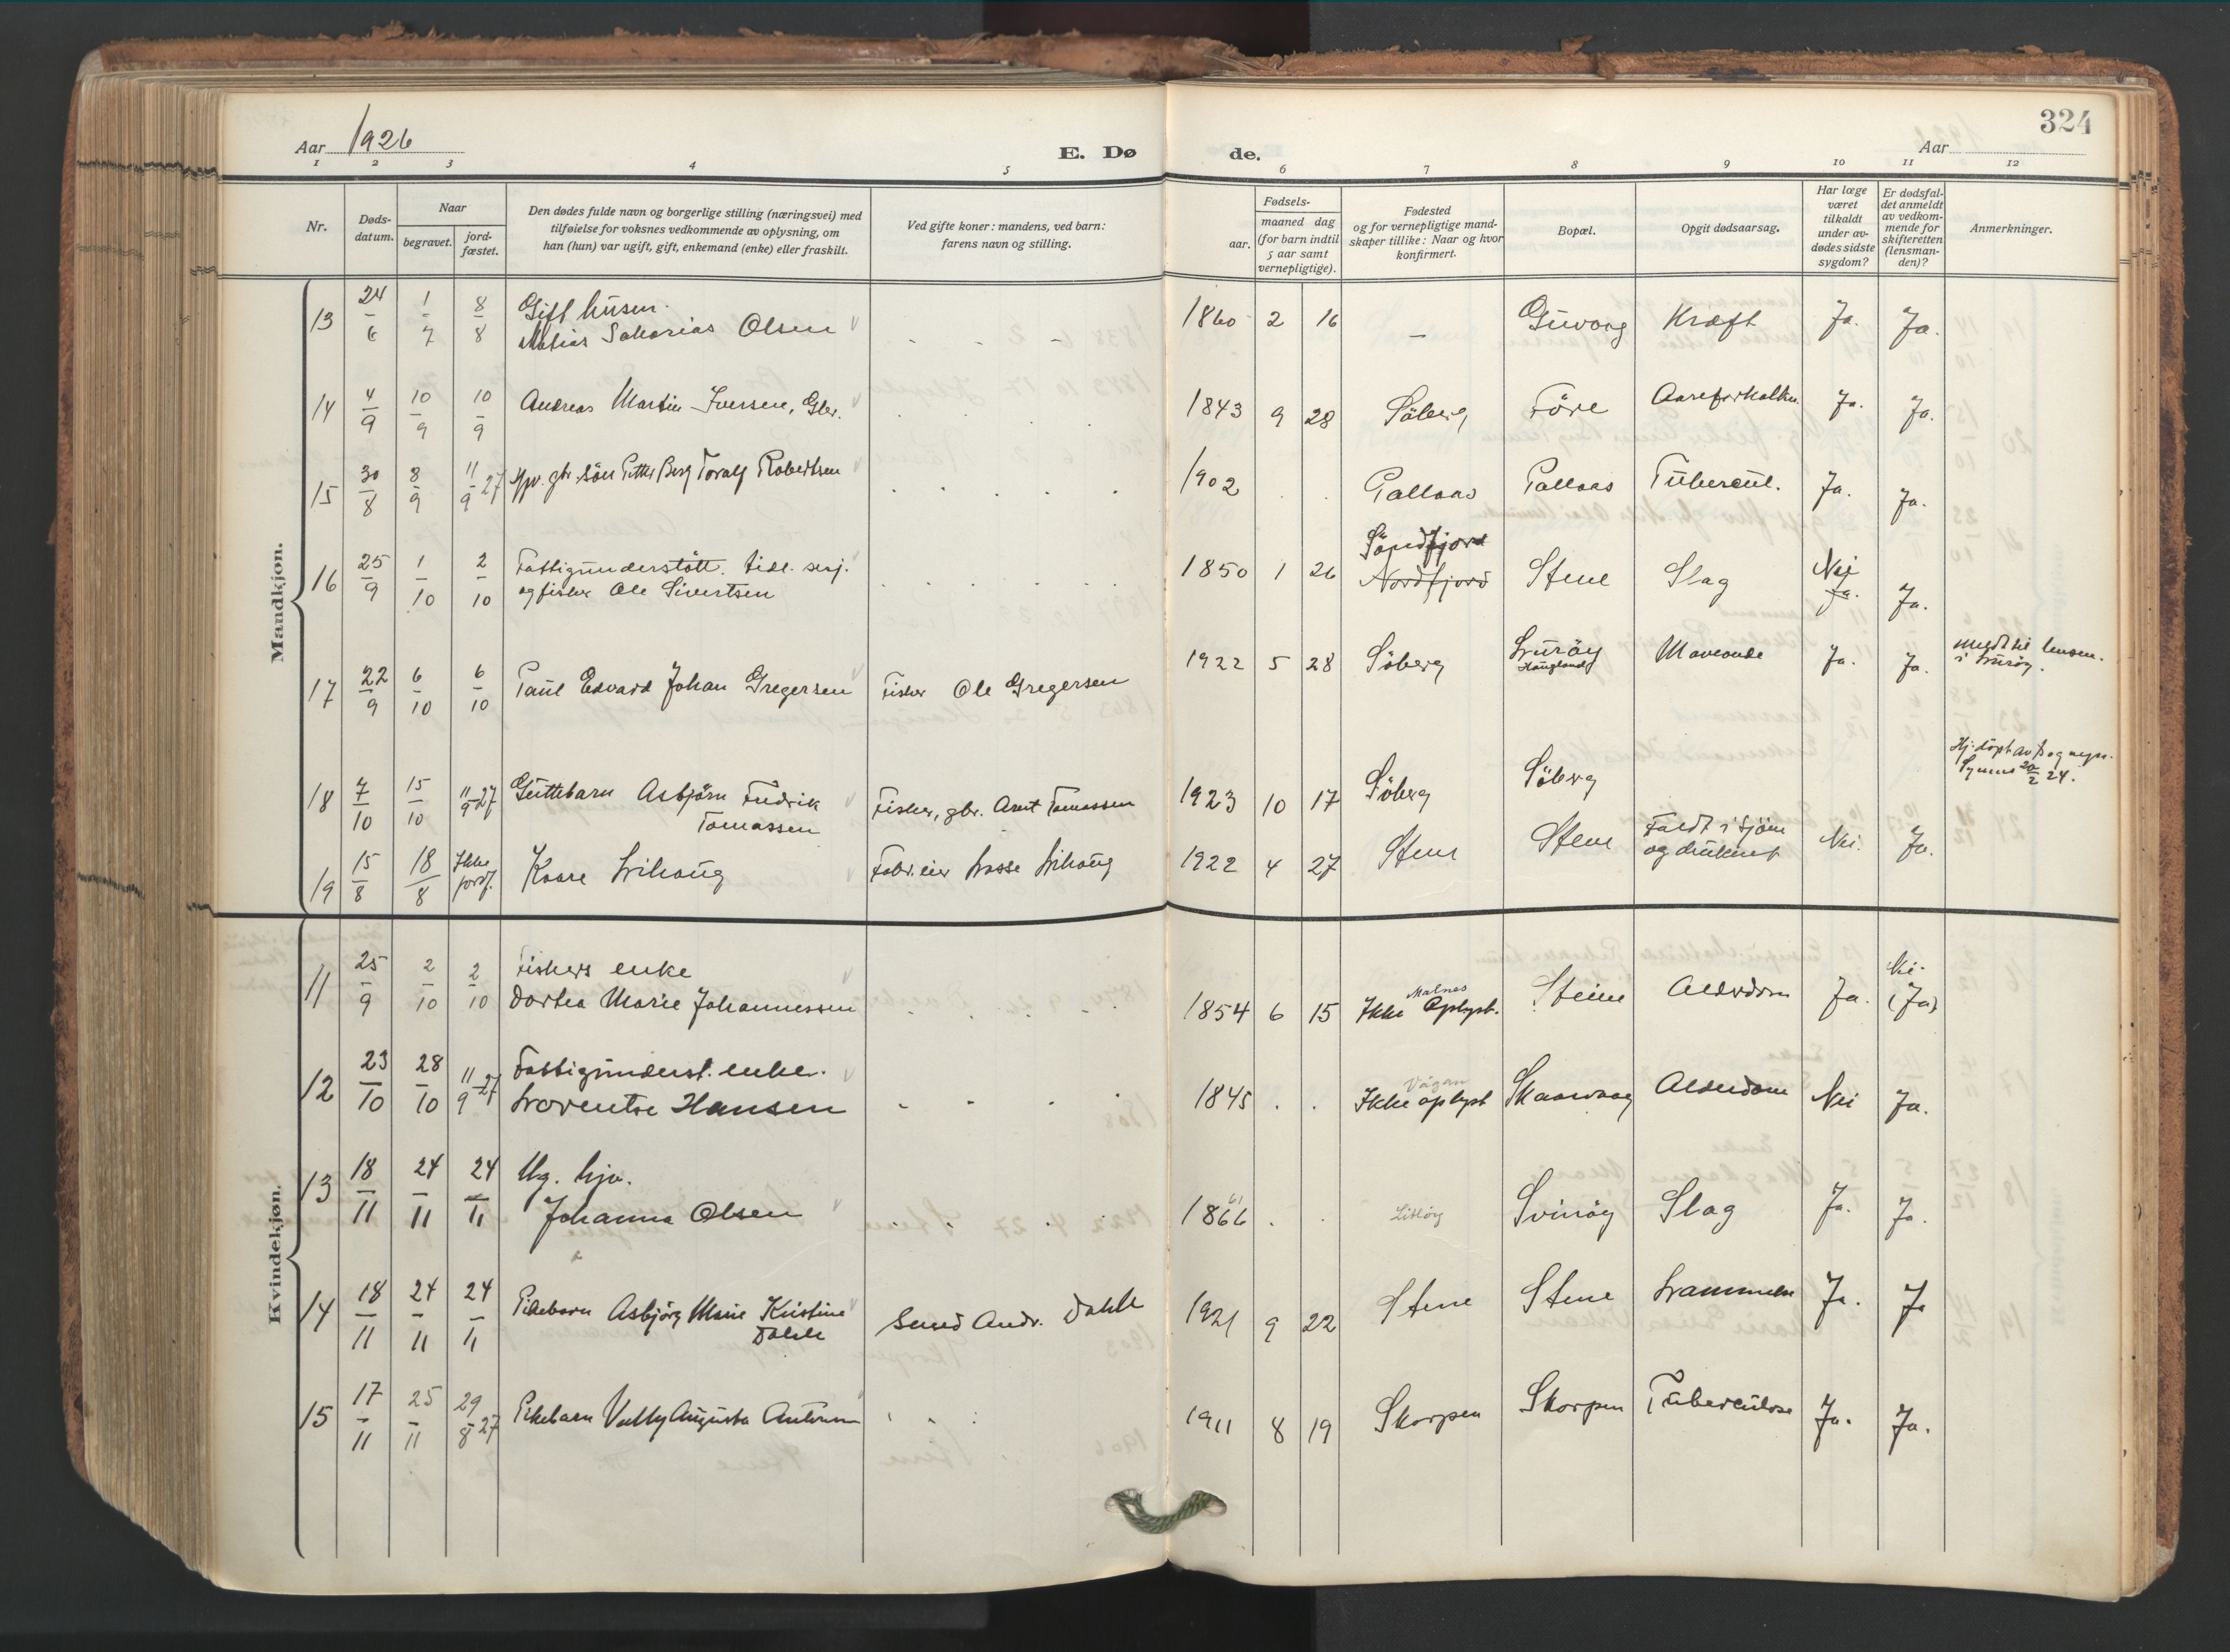 324
Aar 1926
E. Dø
de.
Aar
1 2 3 4 5 6 7 8 9 10 11 12
Nr.
Døds-
datum.
Naar
begravet.
jord-
fæstet.
Den dødes fulde navn og borgerlige stilling (næringsvei) med
tilføielse for voksnes vedkommende av oplysning, om
han (hun) var ugift, gift, enkemand (enke) eller fraskilt.
Ved gifte koner: mandens, ved barn:
farens navn og stilling.
Fødsels-
aar.
maaned dag
(for barn indtil
5 aar samt
vernepligtige).
Fødested
og for vernepligtige mand-
skaper tillike: Naar og hvor
konfirmert.
Bopæl.
Opgit dødsaarsag.
Har læge
været
tilkaldt
under av-
dødes sidste
sygdom?
Er dødsfal-
det anmeldt
av vedkom-
mende for
skifteretten
(lensman-
den)?
Anmerkninger.
Mandkjøn.
13 24/6 1/7 8/8 Gift husm.
Matias Sakarias Olsen 1860 2 16 - Guvaag Kræft Ja. Ja.
14 4/9 10/9 10/9 Andreas Martin Iversen, Gbr. 1843 9 28 Söberg Före Aareforkalkn. Ja. Ja.
15 30/8 8/9 11/9 27 gbr. sön Petter Berg Toralf Robertsen 1902 Pallaas Pallaas Tubercul. Ja. Ja.
16 25/9 1/10 2/10 Fattigunderstött. tidl. serj.
og fisker Ole Sivertsen 1850 1 26 Söndfjord
Nordfjord Stene Slag Nei
Ja. Ja.
17 22/9 6/10 6/10 Paul Edvard Johan Gregersen Fisker Ole Gregersen 1922 5 28 Söberg Luröy
Haugland Maveonde Ja. Ja. meldt til lensm.
i Luröy.
18 7/10 15/10 11/9 27 Guttebarn Asbjörn Fredrik
Tomassen Fisker, gbr. Arnt Tomassen 1923 10 17 Söberg Söberg Hj. döpt av sogneprs.
20/2 24.
19 15/8 18/8 Ikke
jordf. Kaare Lihaug Fabr.eier Lasse Lihaug 1922 4 27 Stene Stene Faldt i sjöen
og druknet Nei. Ja.
Kvindekjøn.
11 25/9 2/10 2/10 Fiskers enke
Dortea Marie Johannessen 1854 6 15 Malnes
Ikke Oplyst. Steine Alderdom Ja. Nei.
(Ja)
12 23/10 28/10 11/9 27 Fattigunderst. enke.
Lorentse Hansen 1845 Vågan
Ikke oplyst Skaarvaag Alderdom Nei Ja.
13 18/11 24/11 24/11 Ug. hjv.
Johanna Olsen 61
1866 Litlöy Svinöy Slag Ja. Ja.
14 18/11 24/11 24/11 Pikebarn Asbjörg Marie Kristine
Dahle Smed Andr. Dahle 1921 9 22 Stene Stene Ja. Ja
15 17/11 25/11 29/8 27 Pikebarn Vally Augusta Antonsen 1911 8 19 Skorpen Skorpen Tuberculose Ja. Ja.